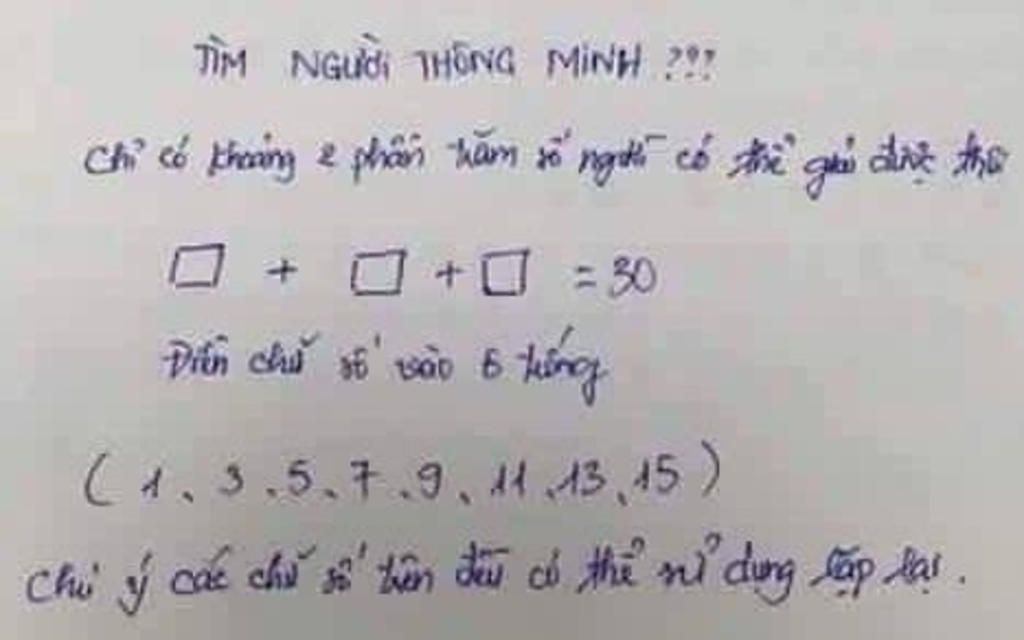 TÌM NGƯỜI THÔNG MINH ???
Chỉ có khoảng 2 phần trăm số người có thể giải được thôi
□ + □ + □ = 30
Điền chữ số vào ô trống
( 1、3、5、7、9、11、13、15 )
Chú ý các chữ số trên đều có thể sử dụng lặp lại.